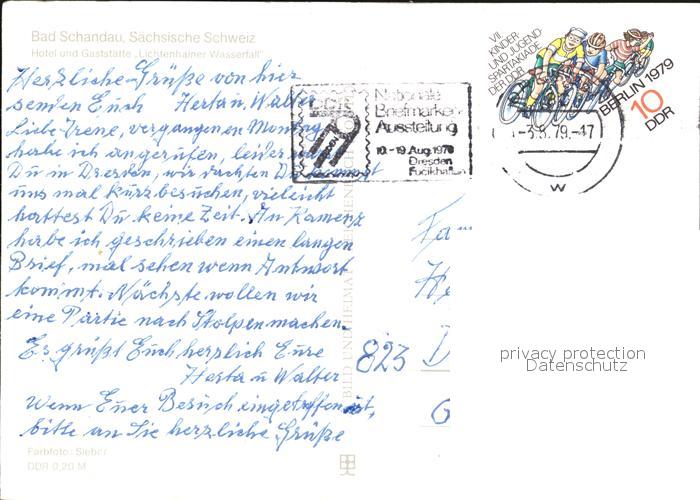 Bad Schandau, Sächsische Schweiz
Hotel und Gaststätte „Lichtenhainer Wasserfall"
Herzliche Grüße von hier
senden Euch Herta u. Walter
Liebe Irene, vergangenen Montag
habe ich angerufen, leider
Du in Dresden, wir dachten Du kommst
uns mal kurz besuchen, vieleicht
hattest Du keine Zeit. An Kamenz
habe ich geschrieben einen langen
Brief, mal sehen wenn Antwort
kommt. Nächste wollen wir
eine Partie nach Stolpen machen.
Es grüßt Euch herzlich Eure
Herta u Walter
Wenn Euer Besuch eingetroffen ist,
bitte an Sie herzliche Grüße
Farbfoto: Sieber
DDR 0,20 M
BILD UND HEIMAT
Nationale
Briefmarken-
Ausstellung
10.-19. Aug. 1979
Dresden
Fucikhalle
VII.
KINDER-
UND JUGEND-
SPARTAKIADE
DER DDR
BERLIN 1979
10
DDR
-3.8.79.-17
w
Fa
He
823 D
G
privacy protection
Datenschutz